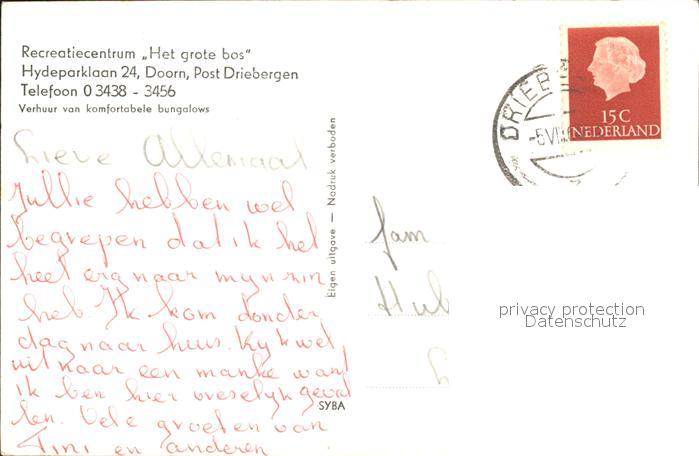 Recreatiecentrum „Het grote bos"
Hydeparklaan 24, Doorn, Post Driebergen
Telefoon 0 3438 - 3456
Verhuur van komfortabele bungalows
Lieve Allemaal
Jullie hebben wel
begrepen dat ik het
heel erg naar myn zin
heb. Ik kom donder
dag naar huis. Kyk wel
uit naar een manke want
ik ben hier vreselyk geval
len. Vele groeten van
Tini en anderen
Eigen uitgave — Nadruk verboden
SYBA
DRIEB
-6 VII
15 C
NEDERLAND
fam
Hub
privacy protection
Datenschutz